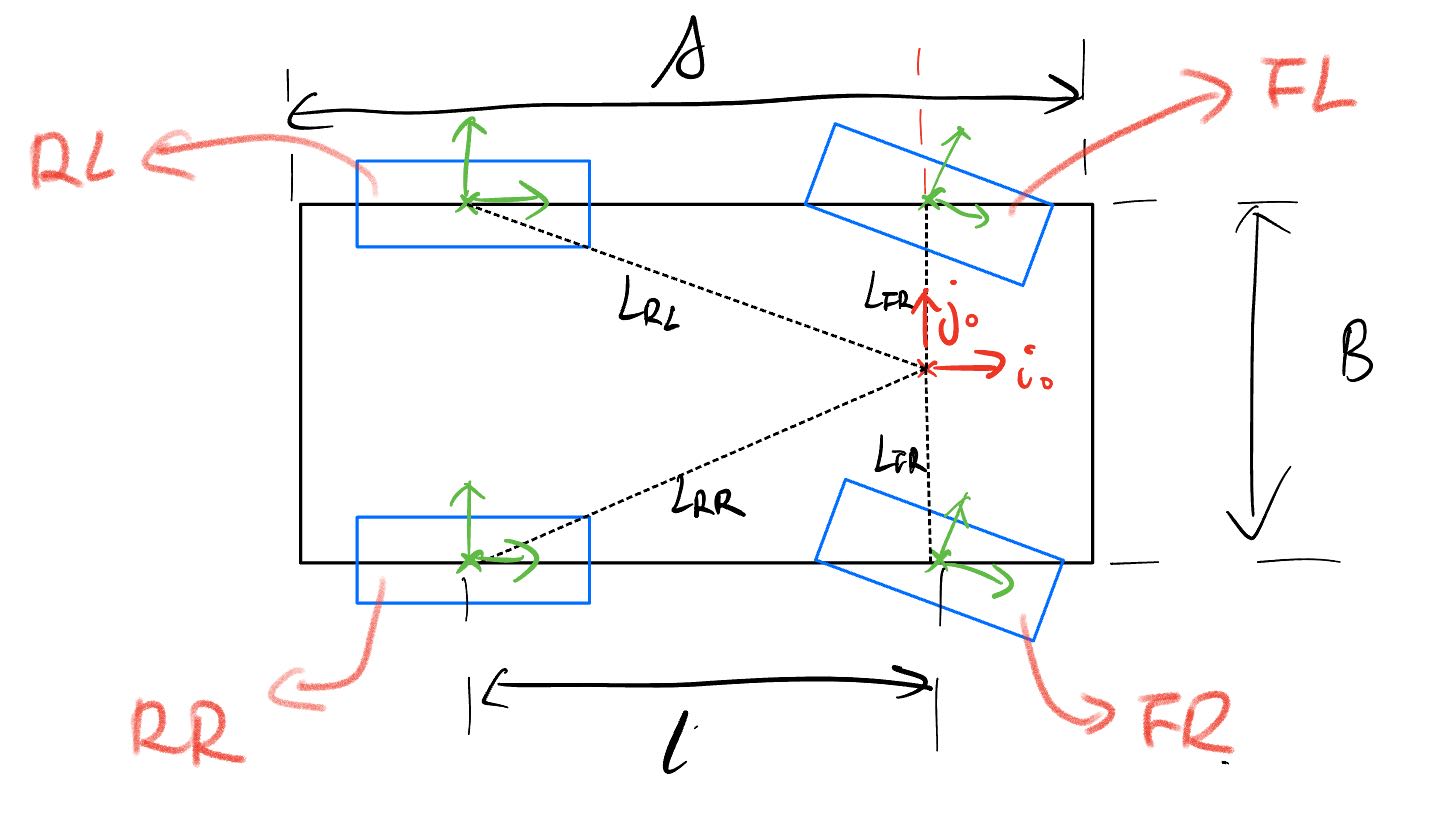 A
FL
RL
L_RL
L_FR
j_0
i_0
B
L_FR
L_RR
RR
l
FR